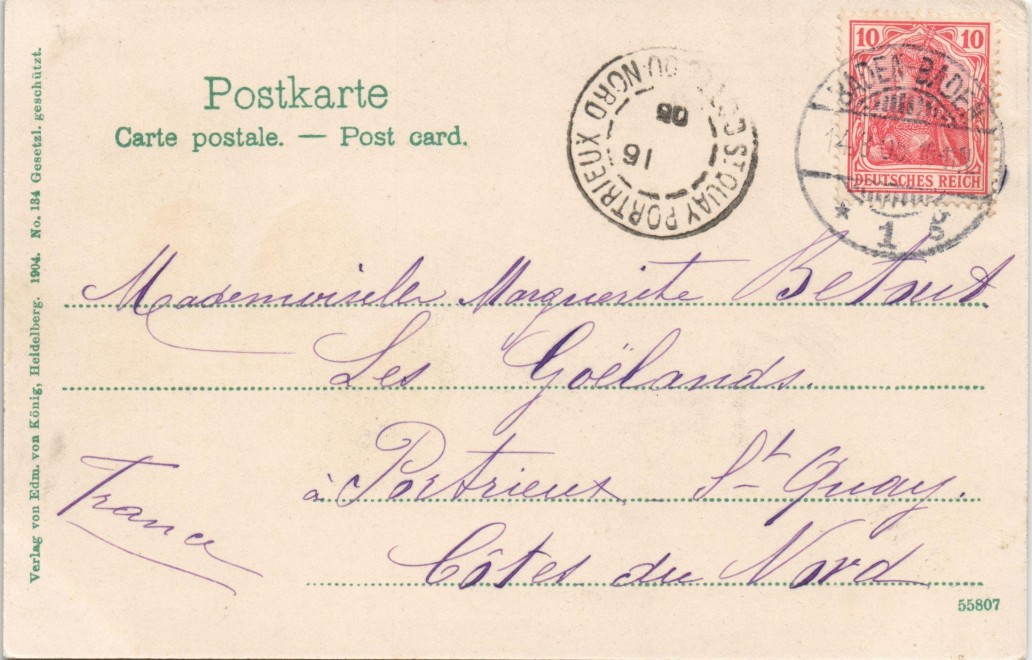 Postkarte
Carte postale. — Post card.
10 10
DEUTSCHES REICH
BADEN BADEN
* 1
ST QUAY PORTRIEUX
DU-NORD
16
Mademoiselle Marguerite Betout
Les Goëlands.
à Portrieux - St Quay.
Côtes du Nord
France
55807
Verlag von Edm. von König, Heidelberg. 1904. No. 134 Gesetzl. geschützt.